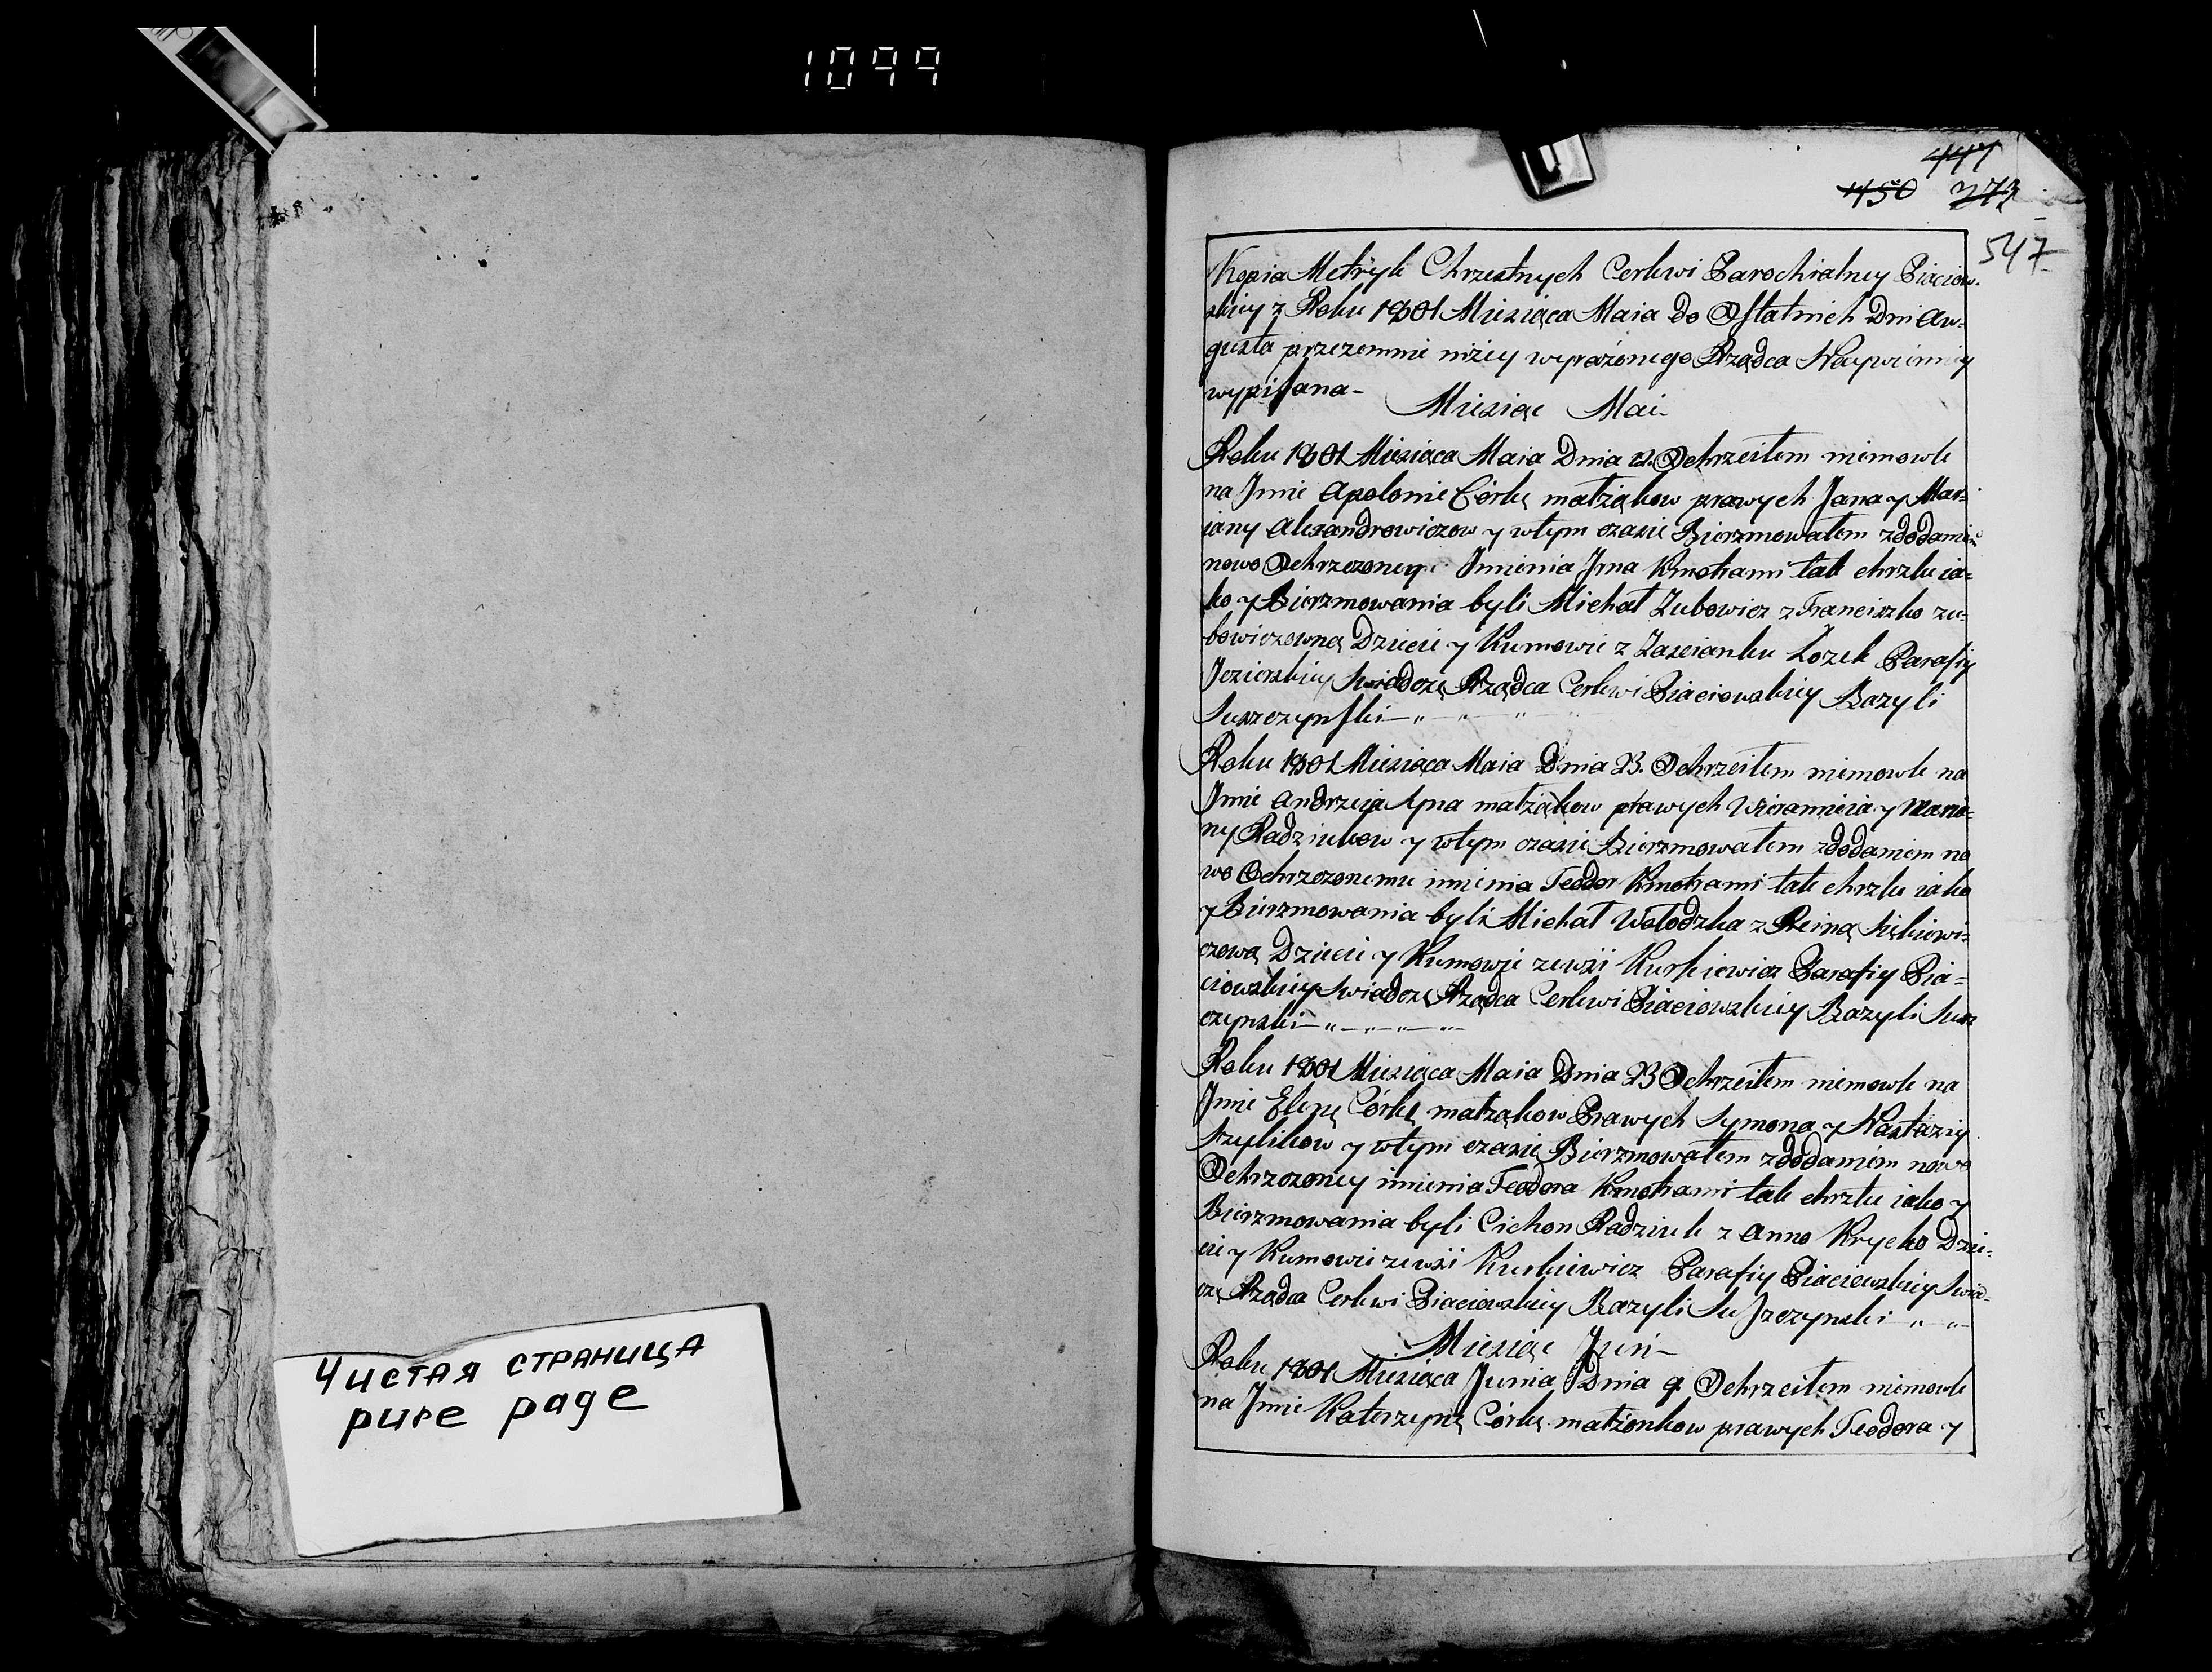 1099
447
450 273
547
Kopia Metryk Chrzestnych Cerkwi Parochialney Piaciow-
skiey z Roku 1801 Miesiąca Maia do Ostatnich Dni Aw-
gusta przezemnie niżey wyrażonego Rządca
wypisana-
Miesiąc Mai-
Roku 1801 Miesiąca Maia Dnia 12. Ochrzciłem niemowle
na Jmie Apolonie Córkę małżąkow prawych Jana y Mar-
iany Alexandrowiczow y wtym czasie Bierzmowałem zdodaniem
nowo Ochrzczoney Jmienia Jrna Kmotrami tak chrztu ia-
ko y Bierzmowania byli Michał Zubowicz z Franciszko zu-
bowiczowną Dzieci y Kumowie z Zascianku Lozek Parafiy
Jezierskiey swiadczę Rządca Cerkwi Piaciowskiey Bazyli
Suszczynski-"-"-"
Roku 1801 Miesiąca Maia Dnia 23. Ochrzciłem niemowle na
Jmie Andrzeja Syna małżąkow prawych y Maria-
ny Radziukow y wtym czasie Bierzmowałem zdodaniem no
wo Ochrzczonemu imienia Teodor Kmotrami tak chrztu iako
y Bierzmowania byli Michał Wołodzka z Reiną
czową Dzieci y Kumowie zewsi Kurkiewicz Parafiy Pia-
ciowskiey swiadczę Rządca Cerkwi Piaciowskiey Bazyli Susz
czynski-"-"-"-
Roku 1801 Miesiąca Maia Dnia 23 Ochrzciłem niemowle na
Jmie Elenę Córkę małżąkow Prawych Symona y Nastaziy
y wtym czasie Bierzmowałem zdodaniem nowo
Ochrzczoney imienia Teodora Kmotrami tak chrztu iako y
Bierzmowania byli Cichon Radziuk z Anno Krycko Dzie-
ci y Kumowie zewsi Kurkiewicz Parafiy Piaciowskiey Swiad-
czę Rządca Cerkwi Piaciowskiey Bazyli Suszczynski-"-"-
Miesiąc Juń-
Roku 1801 Miesiąca Junia Dnia 9. Ochrzciłem niemowle
na Jmie Katerzynę Córkę małżonkow prawych Teodora y
Чистая страница
pure page